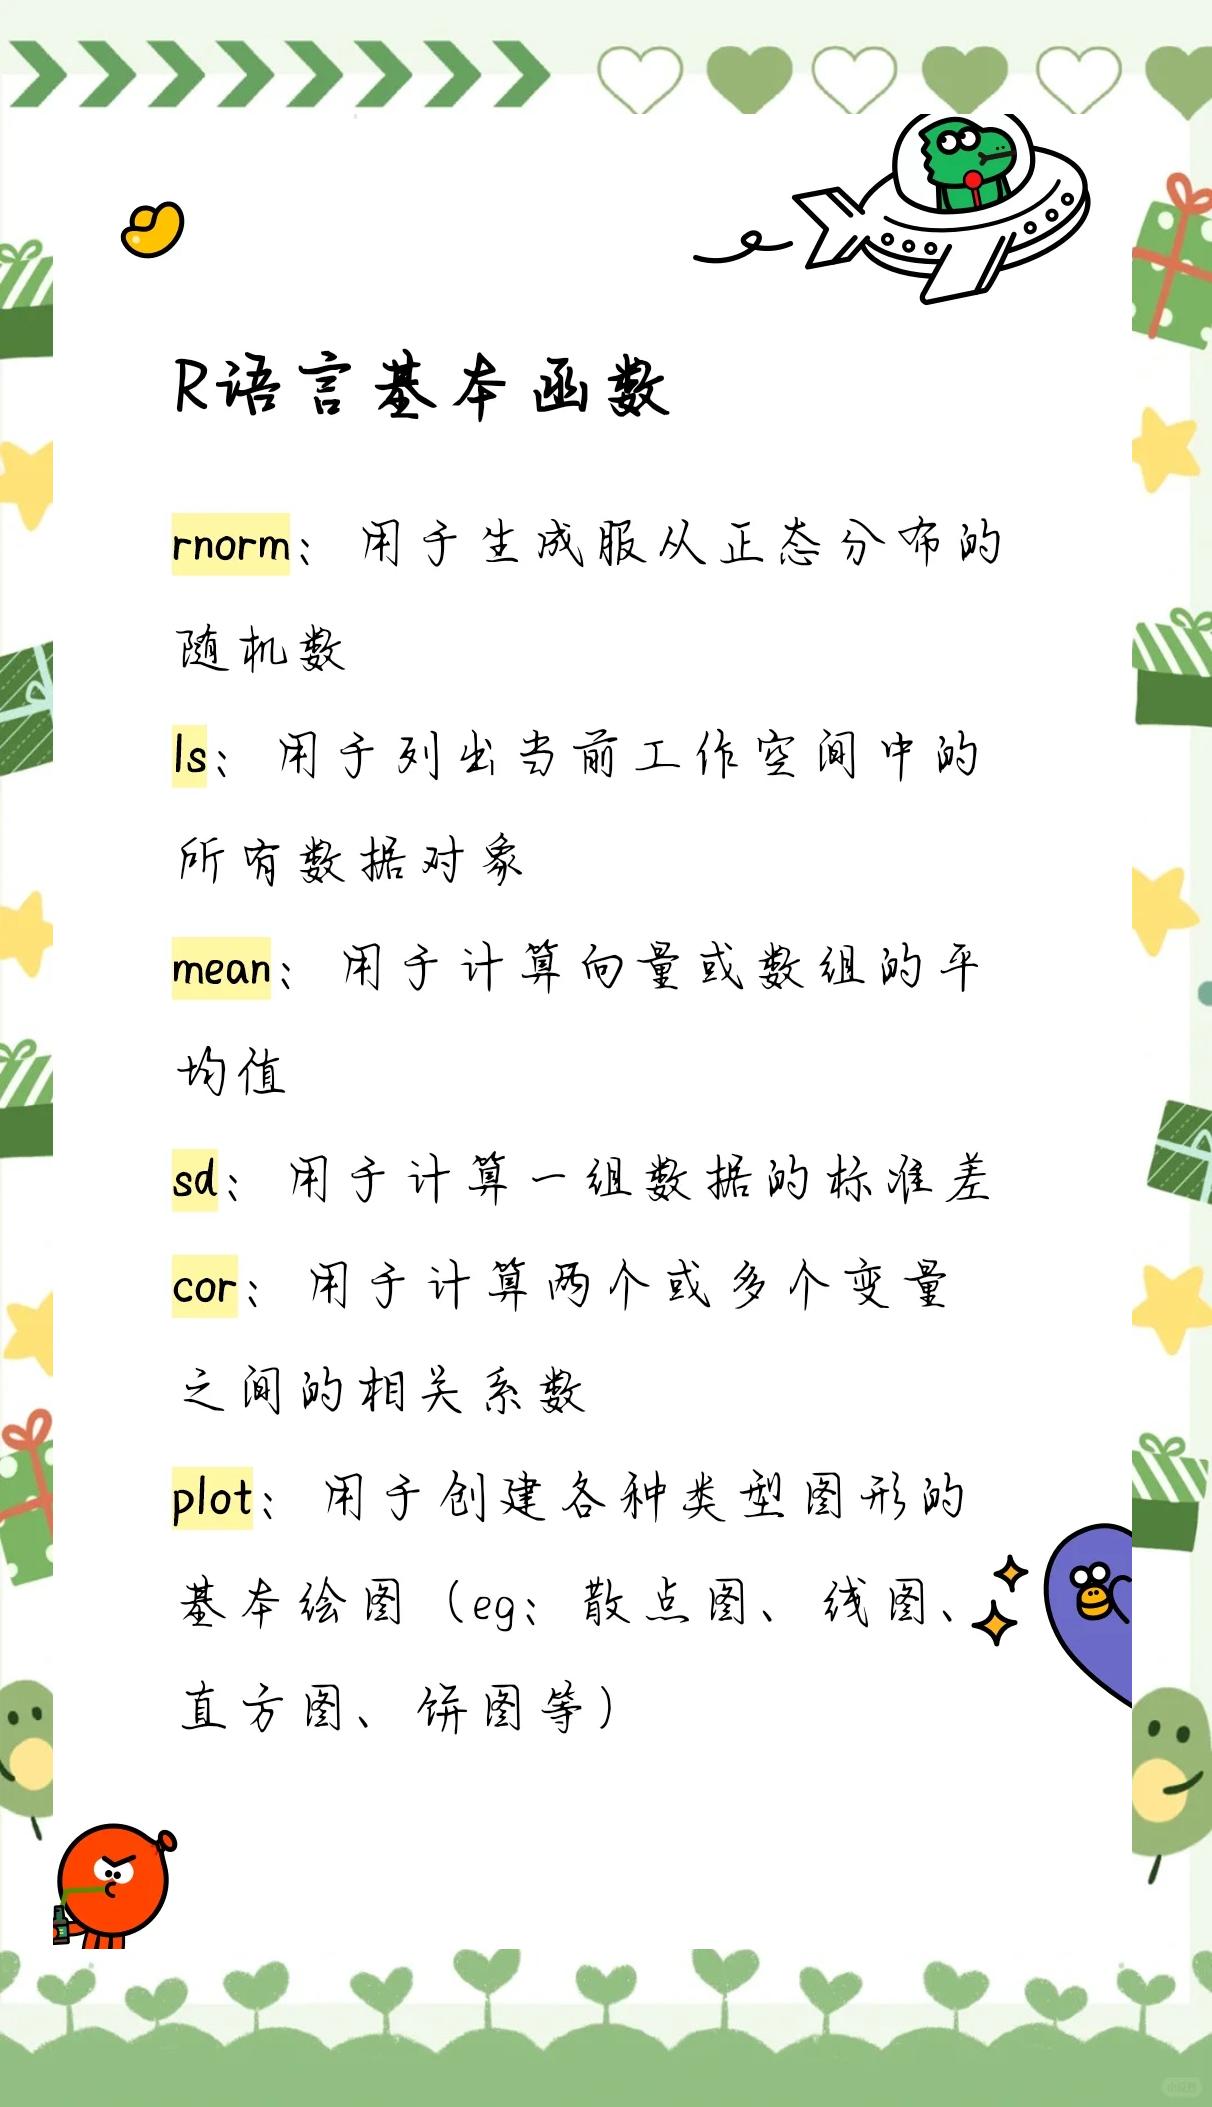 R语言基本函数
rnorm：用于生成服从正态分布的
随机数
ls：用于列出当前工作空间中的
所有数据对象
mean：用于计算向量或数组的平
均值
sd：用于计算一组数据的标准差
cor：用于计算两个或多个变量
之间的相关系数
plot：用于创建各种类型图形的
基本绘图（eg：散点图、线图、
直方图、饼图等）
小红书